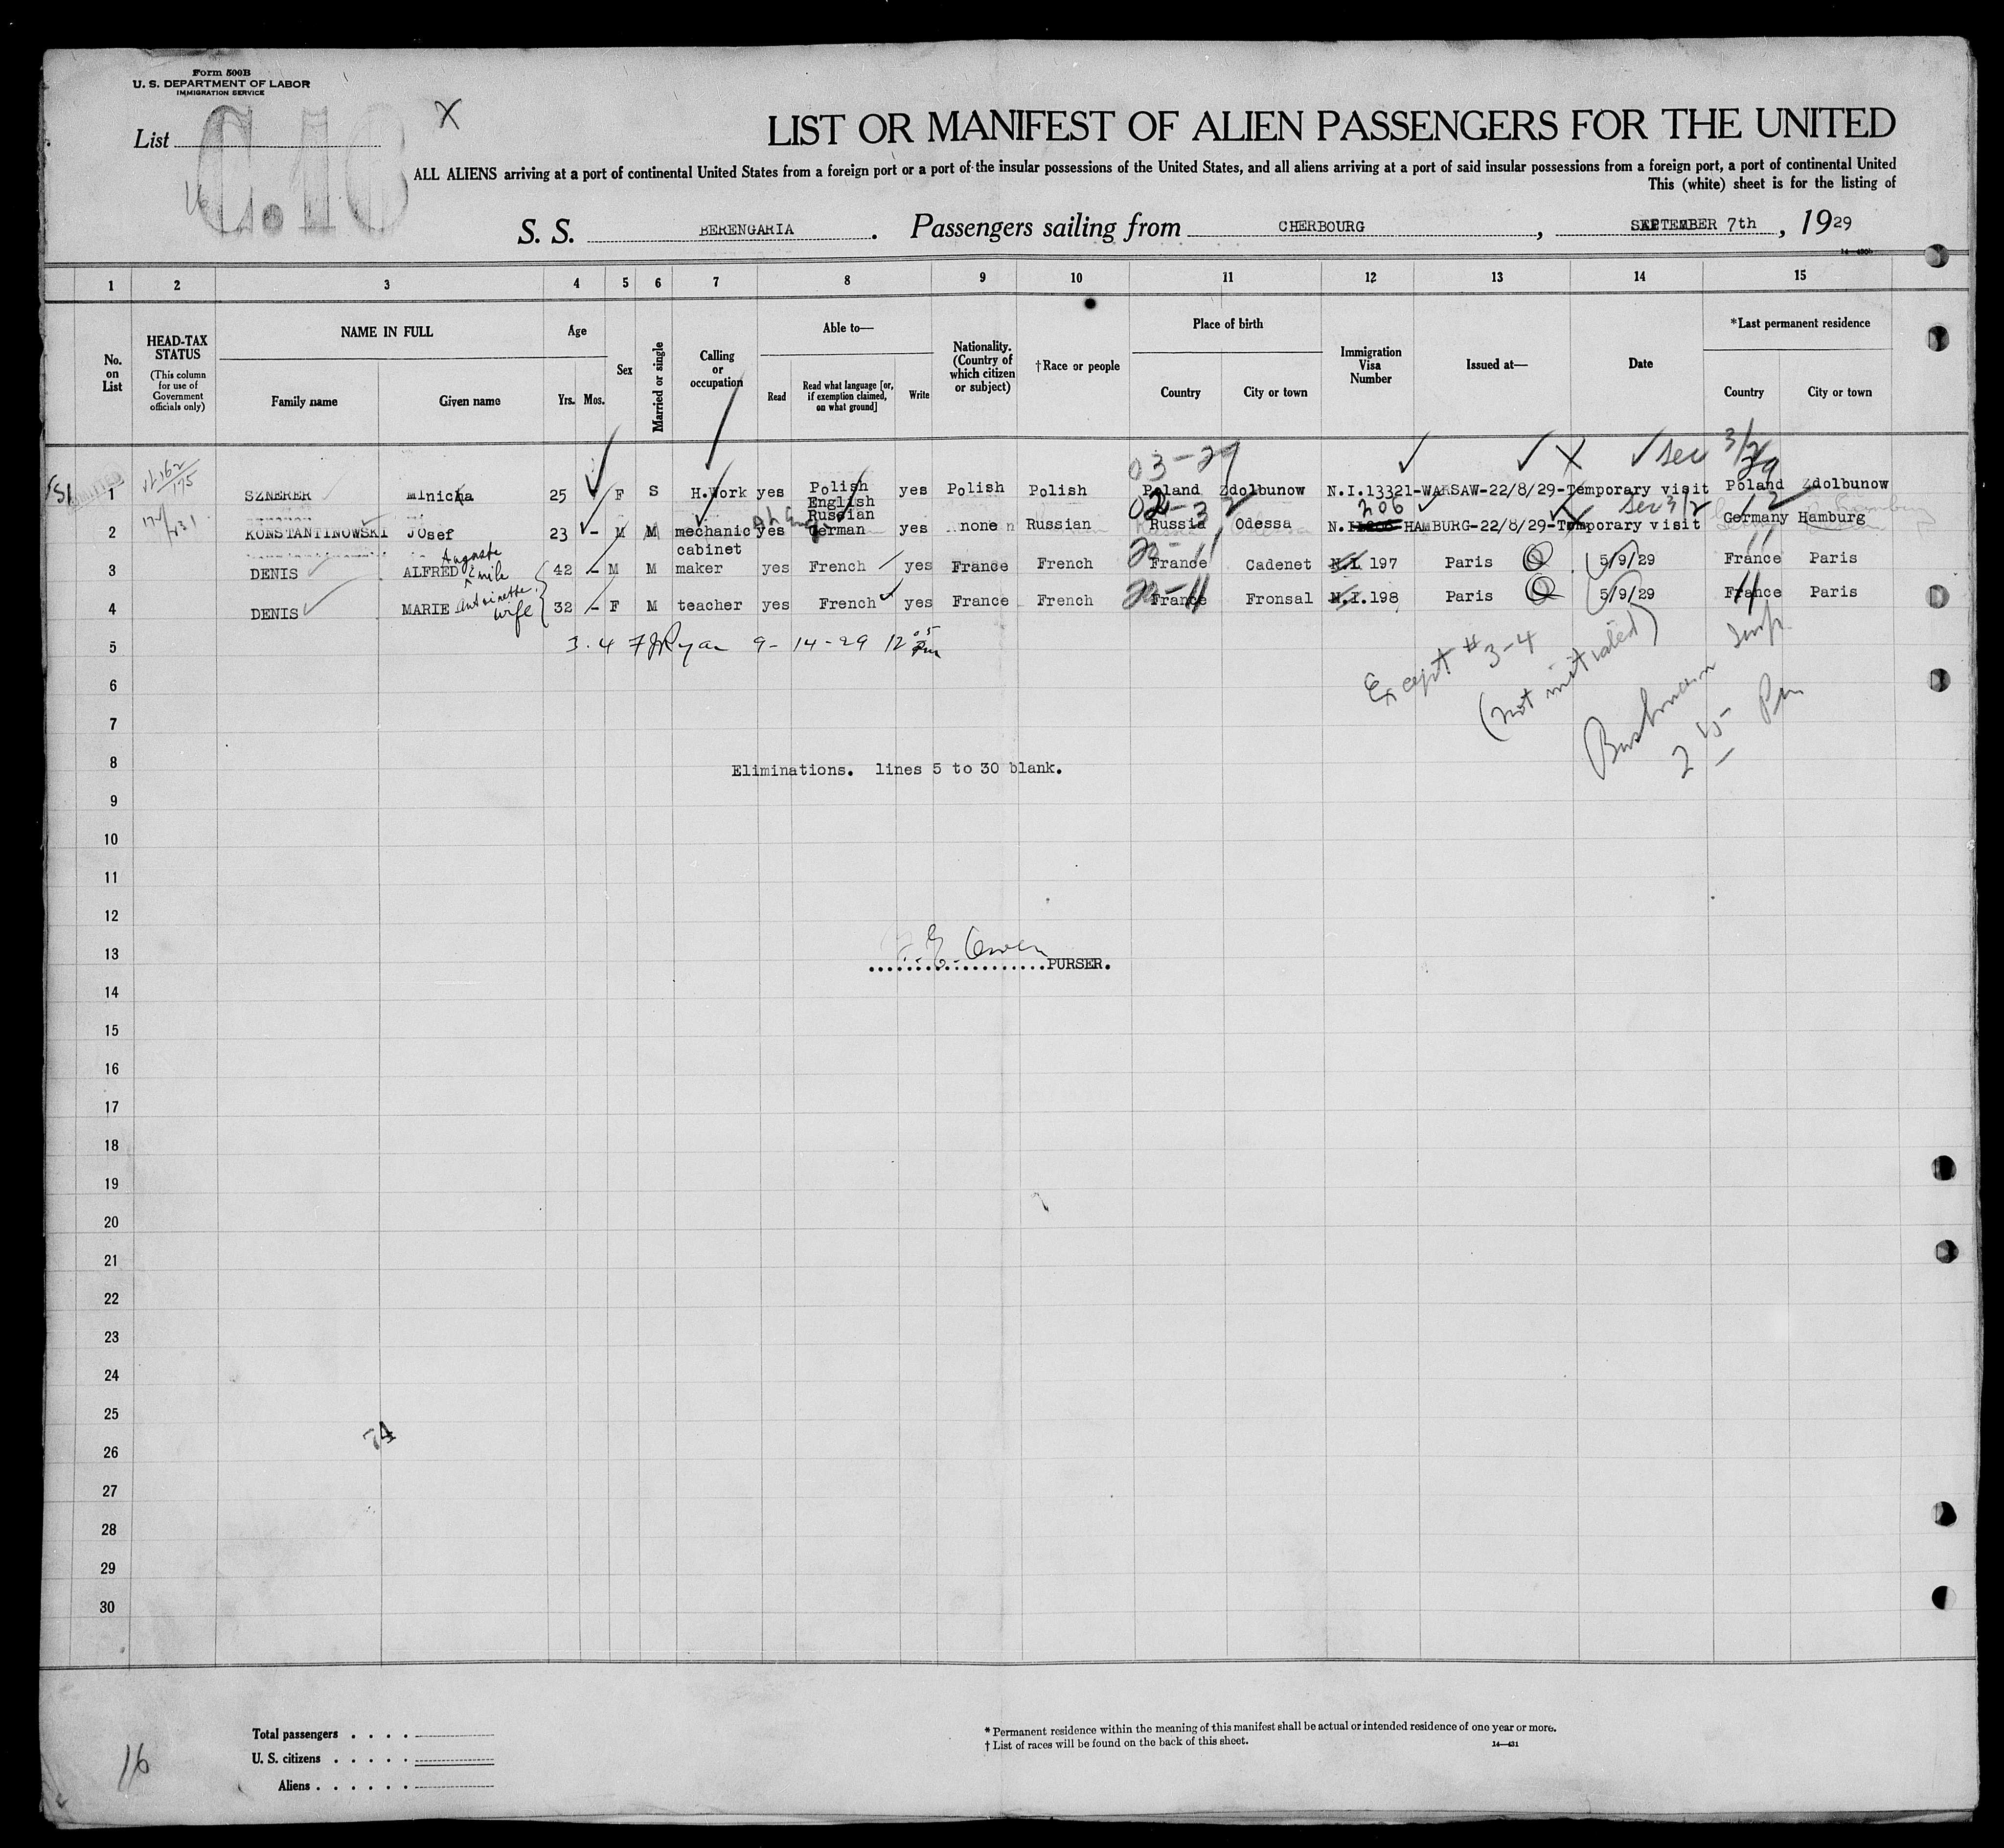 Form 500B
U. S. DEPARTMENT OF LABOR
IMMIGRATION SERVICE
List
C.18
X
LIST OR MANIFEST OF ALIEN PASSENGERS FOR THE UNITED
ALL ALIENS arriving at a port of continental United States from a foreign port or a port of the insular possessions of the United States, and all aliens arriving at a port of said insular possessions from a foreign port, a port of continental United
This (white) sheet is for the listing of
S. S. BERENGARIA. Passengers sailing from CHERBOURG, SEPTEMBER 7th, 1929
1 2 3 4 5 6 7 8 9 10 11 12 13 14 15
No. on List
HEAD-TAX STATUS
(This column for use of Government officials only)
NAME IN FULL
Family name
Given name
Age
Yrs. Mos.
Sex
Married or single
Calling or occupation
Able to—
Read
Read what language [or, if exemption claimed, on what ground]
Write
Nationality. (Country of which citizen or subject)
†Race or people
Place of birth
Country
City or town
Immigration Visa Number
Issued at—
Date
*Last permanent residence
Country
City or town
03-29
✓ X ✓ Sec 3/2
29
1 SZNERER 25 F S H.Work yes Polish English yes Polish Polish Poland Zdolbunow N.I.13321-WARSAW-22/8/29-Temporary visit Poland Zdolbunow
206 Sec 3/2
2 KONSTANTINOWSKI JOsef 23 - M M mechanic yes Russian German yes none Russian Russia Odessa N.I. HAMBURG-22/8/29-Temporary visit Germany Hamburg
3 DENIS ALFRED Auguste Emile 42 - M M cabinet maker yes French yes France French France Cadenet N.I. 197 Paris 5/9/29 France Paris
4 DENIS MARIE Antoinette wife 32 - F M teacher yes French yes France French France Fronsal N.I.198 Paris 5/9/29 France Paris
5 3.4 FJRyan 9-14-29 12 05 Pm
Except #3-4
(not initialed)
Insp.
2 15 Pm
6
7
8 Eliminations. lines 5 to 30 blank.
9
10
11
12
13 PURSER.
14
15
16
17
18
19
20
21
22
23
24
25
74
26
27
28
29
30
Total passengers
U. S. citizens
Aliens
16
* Permanent residence within the meaning of this manifest shall be actual or intended residence of one year or more.
† List of races will be found on the back of this sheet.
14—431